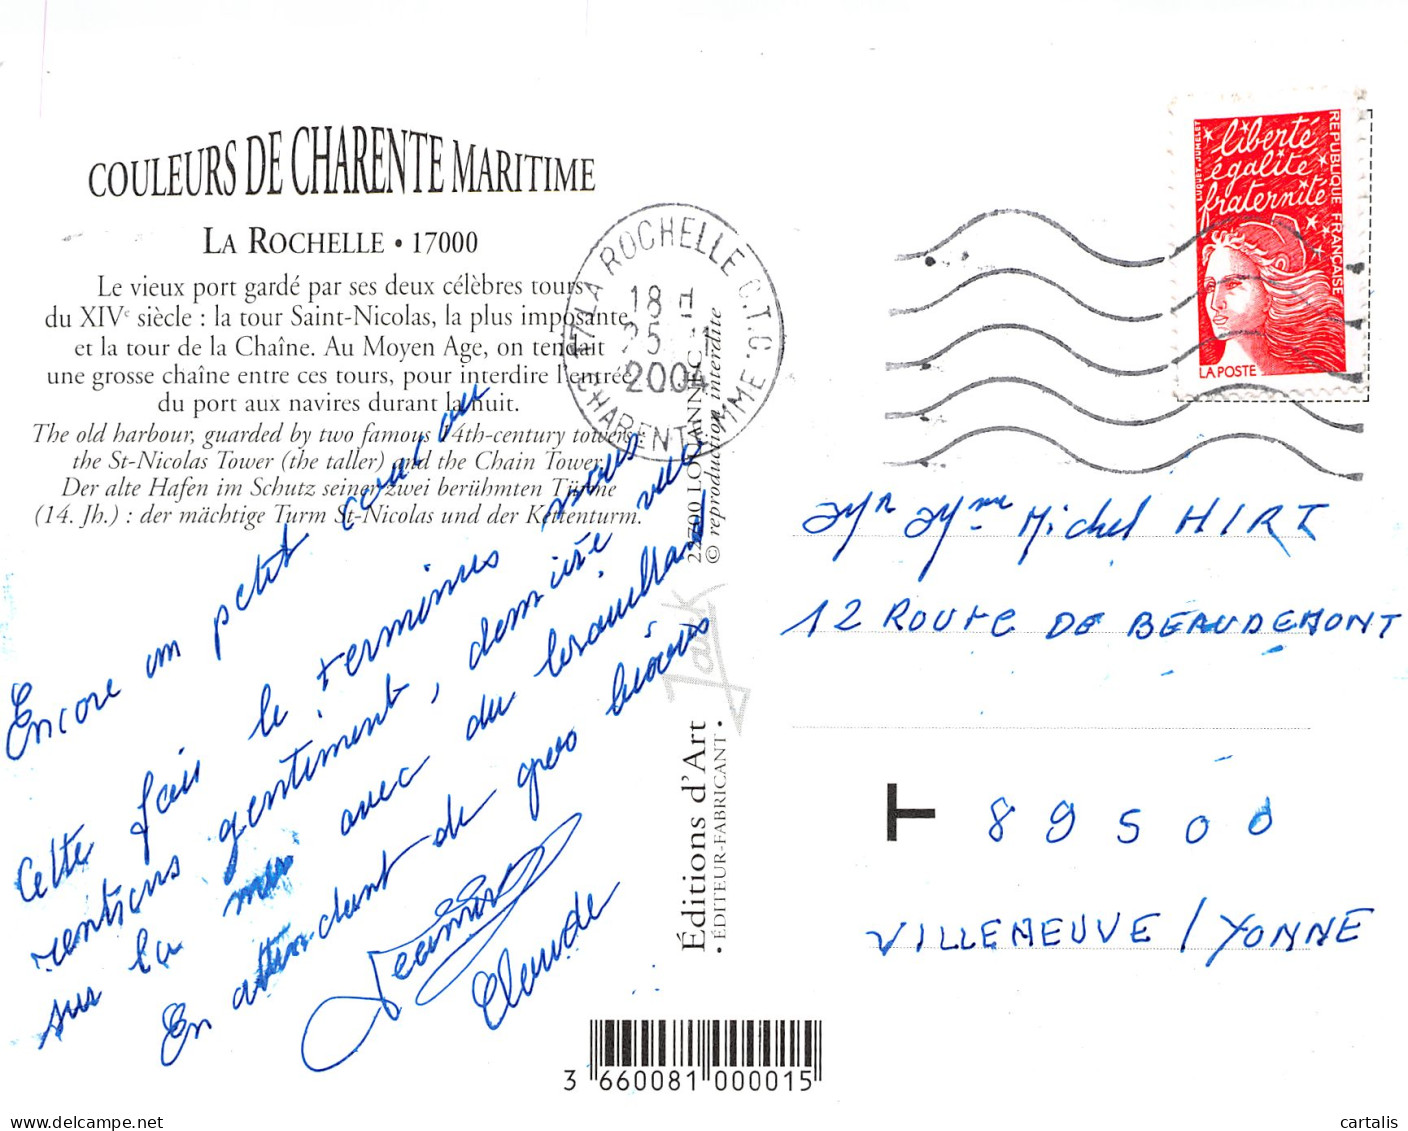 COULEURS DE CHARENTE MARITIME
LA ROCHELLE • 17000
Le vieux port gardé par ses deux célèbres tours
du XIVe siècle : la tour Saint-Nicolas, la plus imposante
et la tour de la Chaîne. Au Moyen Age, on tendait
une grosse chaîne entre ces tours, pour interdire l'entrée
du port aux navires durant la nuit.
The old harbour, guarded by two famous 14th-century towers,
the St-Nicolas Tower (the taller) and the Chain Tower.
Der alte Hafen im Schutz seiner zwei berühmten Türme
(14. Jh.) : der mächtige Turm St-Nicolas und der Kettenturm.
Encore un petit coucou
Cette fois le terminus nous
rentrons gentiment, dernière vue
sur la mer avec du brouillard
En attendant de gros bisous
Jeannine
Claude
Éditions d'Art
• ÉDITEUR-FABRICANT •
Jack
22700 LOUANNEC
© reproduction interdite
17 LA ROCHELLE C.T.C.
18 H
25 -1
2004
CHARENTE MME
liberté
égalité
fraternité
RÉPUBLIQUE FRANÇAISE
LUQUET-JUMELET
LA POSTE
Mr Mme Michel HIRT
12 ROUTE DE BEAUDEMONT
T 89500
VILLENEUVE / YONNE
3 660081 000015
cartalis
delcampe.net